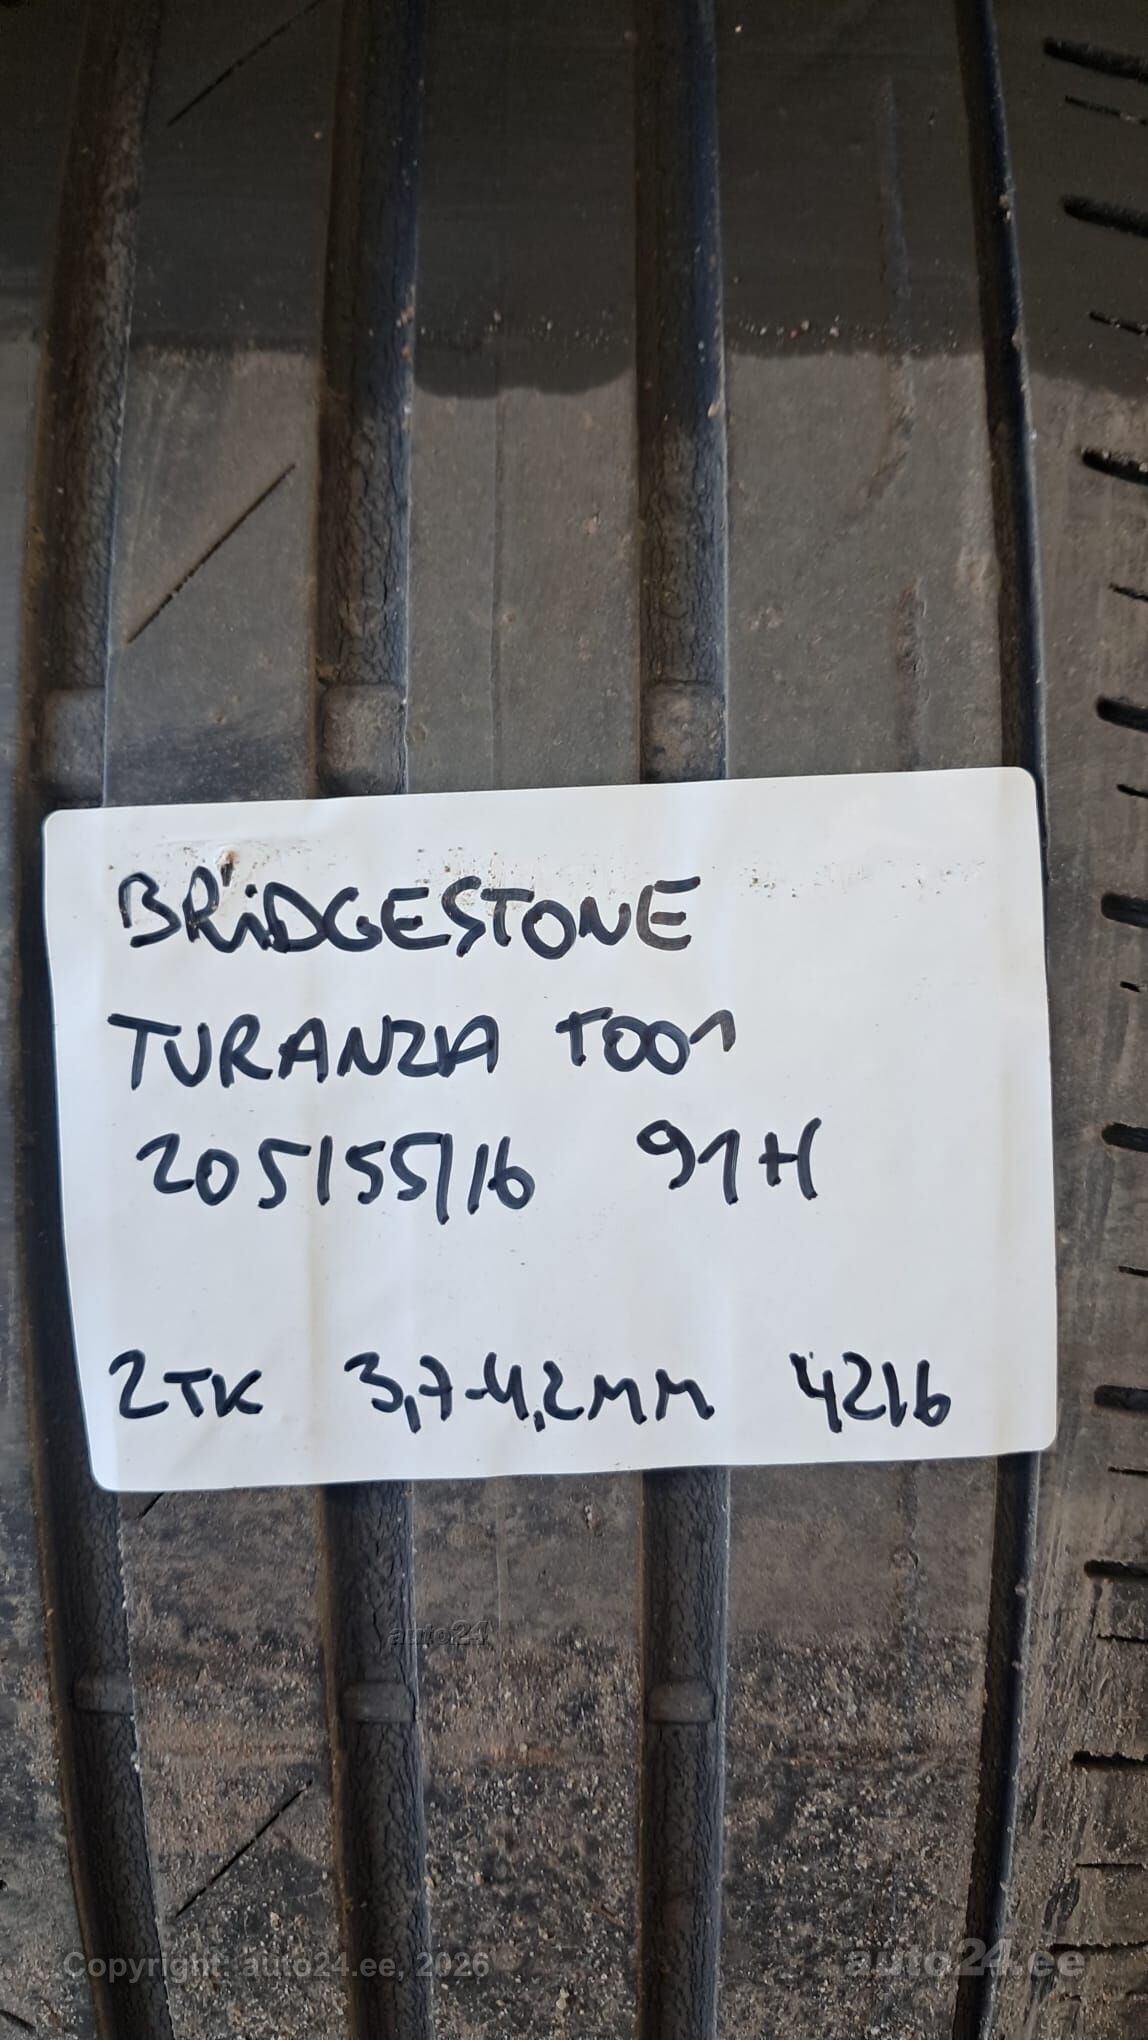 BRiDGESTONE
TURANZA T001
205/55/16 91H
2TK 3,7-4,2MM 4216
auto24
Copyright: auto24.ee, 2026
auto24.ee